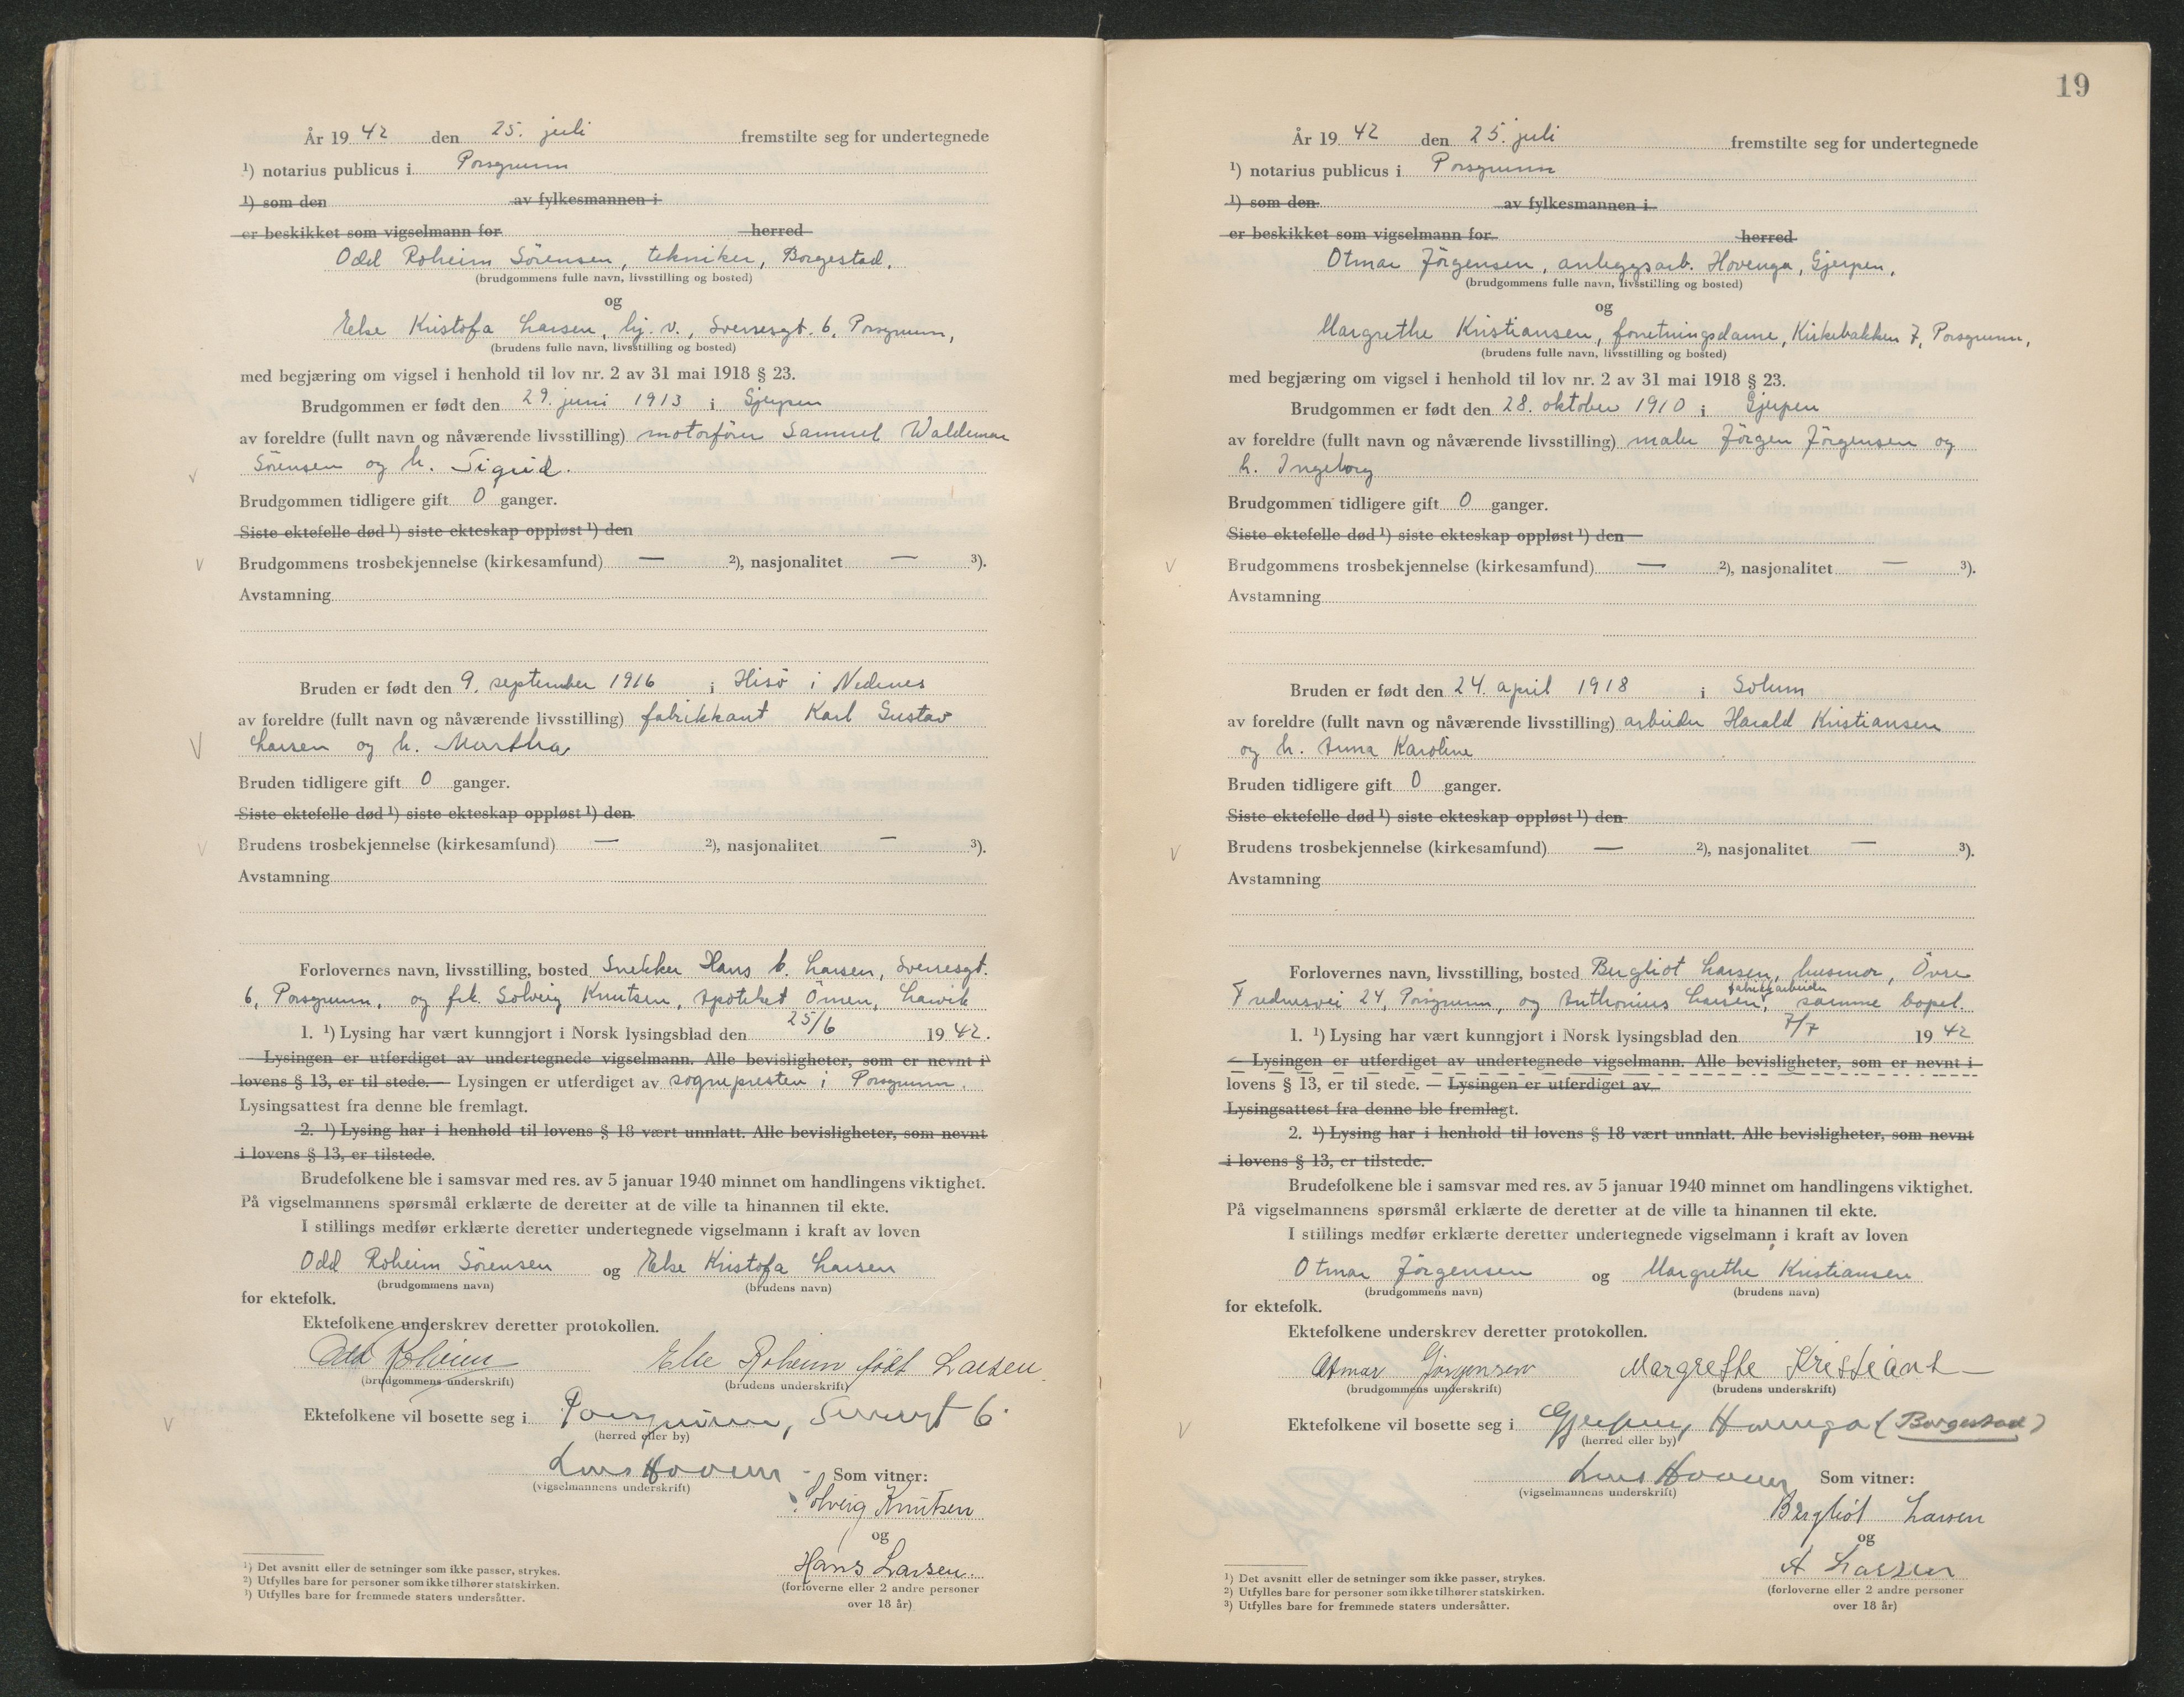 År 19 42 den 25. juli fremstilte seg for undertegnede
¹) notarius publicus i Porsgrunn
¹) som den av fylkesmannen i
er beskikket som vigselmann for herred
Odd Roheim Sörensen, tekniker, Borgestad.
(brudgommens fulle navn, livsstilling og bosted)
og
Else Kristofa Larsen, hj. v., Sverresgt. 6, Porsgrunn,
(brudens fulle navn, livsstilling og bosted)
med begjæring om vigsel i henhold til lov nr. 2 av 31 mai 1918 § 23.
Brudgommen er født den 29. juni 1913 i Gjerpen
av foreldre (fullt navn og nåværende livsstilling) motorfører Samuel Waldemar
Sörensen og h. Sigrid.
Brudgommen tidligere gift 0 ganger.
Siste ektefelle død ¹) siste ekteskap oppløst ¹) den
Brudgommens trosbekjennelse (kirkesamfund) — ²), nasjonalitet — ³).
Avstamning
Bruden er født den 9. september 1916 i Hisö i Nedenes
av foreldre (fullt navn og nåværende livsstilling) fabrikkant Karl Gustav
Larsen og h. Martha
Bruden tidligere gift 0 ganger.
Siste ektefelle død ¹) siste ekteskap oppløst ¹) den
Brudens trosbekjennelse (kirkesamfund) — ²), nasjonalitet — ³).
Avstamning
Forlovernes navn, livsstilling, bosted Snekker Hans Larsen, Sverresgt.
6, Porsgrunn, og frk. Solveig Knutsen, Apoteket Örnen, Larvik
1. ¹) Lysing har vært kunngjort i Norsk lysingsblad den 25/6 19 42.
— Lysingen er utferdiget av undertegnede vigselmann. Alle bevisligheter, som er nevnt i
lovens § 13, er til stede. — Lysingen er utferdiget av sognepresten i Porsgrunn.
Lysingsattest fra denne ble fremlagt.
2. ¹) Lysing har i henhold til lovens § 18 vært unnlatt. Alle bevisligheter, som nevnt
i lovens § 13, er tilstede.
Brudefolkene ble i samsvar med res. av 5 januar 1940 minnet om handlingens viktighet.
På vigselmannens spørsmål erklærte de deretter at de ville ta hinannen til ekte.
I stillings medfør erklærte deretter undertegnede vigselmann i kraft av loven
Odd Roheim Sörensen og Else Kristofa Larsen
(brudgommens navn) (brudens navn)
for ektefolk.
Ektefolkene underskrev deretter protokollen.
Odd Roheim Else Roheim født Larsen.
(brudgommens underskrift) (brudens underskrift)
Ektefolkene vil bosette seg i Porsgrunn, Sverresgt 6.
(herred eller by)
(vigselmannens underskrift) Som vitner:
Solveig Knutsen
og
Hans Larsen.
(forloverne eller 2 andre personer
over 18 år)
¹) Det avsnitt eller de setninger som ikke passer, strykes.
²) Utfylles bare for personer som ikke tilhører statskirken.
¹) Utfylles bare for fremmede staters undersåtter.
19
År 19 42 den 25. juli fremstilte seg for undertegnede
¹) notarius publicus i Porsgrunn
¹) som den av fylkesmannen i
er beskikket som vigselmann for herred
Otmar Jörgensen, anleggsarb. Hovenga, Gjerpen,
(brudgommens fulle navn, livsstilling og bosted)
og
Margrethe Kristiansen, forretningsdame, Kirkebakken 7, Porsgrunn,
(brudens fulle navn, livsstilling og bosted)
med begjæring om vigsel i henhold til lov nr. 2 av 31 mai 1918 § 23.
Brudgommen er født den 28. oktober 1910 i Gjerpen
av foreldre (fullt navn og nåværende livsstilling) maler Jörgen Jörgensen og
h. Ingeborg
Brudgommen tidligere gift 0 ganger.
Siste ektefelle død ¹) siste ekteskap oppløst ¹) den
Brudgommens trosbekjennelse (kirkesamfund) — ²), nasjonalitet — ³).
Avstamning
Bruden er født den 24. april 1918 i Solum
av foreldre (fullt navn og nåværende livsstilling) arbeider Harald Kristiansen
og h. Anna Karoline
Bruden tidligere gift 0 ganger.
Siste ektefelle død ¹) siste ekteskap oppløst ¹) den
Brudens trosbekjennelse (kirkesamfund) — ²), nasjonalitet — ³).
Avstamning
Forlovernes navn, livsstilling, bosted Bergliot Larsen, husmor, Övre
Frednesvei 24, Porsgrunn, og Anthonius Larsen, fabrikkarbeider samme bopel.
1. ¹) Lysing har vært kunngjort i Norsk lysingsblad den 7/7 19 42
— Lysingen er utferdiget av undertegnede vigselmann. Alle bevisligheter, som er nevnt i
lovens § 13, er til stede. — Lysingen er utferdiget av
Lysingsattest fra denne ble fremlagt.
2. ¹) Lysing har i henhold til lovens § 18 vært unnlatt. Alle bevisligheter, som nevnt
i lovens § 13, er tilstede.
Brudefolkene ble i samsvar med res. av 5 januar 1940 minnet om handlingens viktighet.
På vigselmannens spørsmål erklærte de deretter at de ville ta hinannen til ekte.
I stillings medfør erklærte deretter undertegnede vigselmann i kraft av loven
Otmar Jörgensen og Margrethe Kristiansen
(brudgommens navn) (brudens navn)
for ektefolk.
Ektefolkene underskrev deretter protokollen.
Otmar Jörgensen Margrethe
(brudgommens underskrift) (brudens underskrift)
Ektefolkene vil bosette seg i Gjerpen, Hovenga (Borgestad)
(herred eller by)
(vigselmannens underskrift) Som vitner:
Bergliot Larsen
og
A Larsen
(forloverne eller 2 andre personer
over 18 år)
¹) Det avsnitt eller de setninger som ikke passer, strykes.
²) Utfylles bare for personer som ikke tilhører statskirken.
³) Utfylles bare for fremmede staters undersåtter.